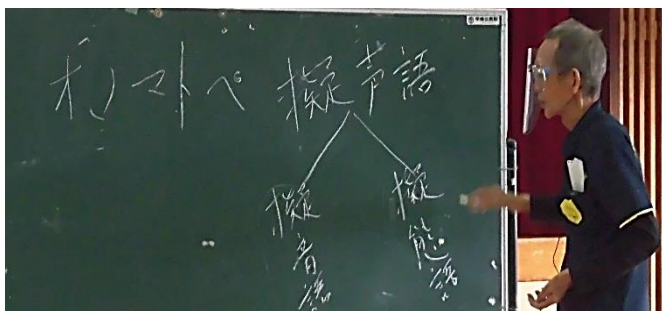 オノマトペ 擬声語
擬音語
擬態語